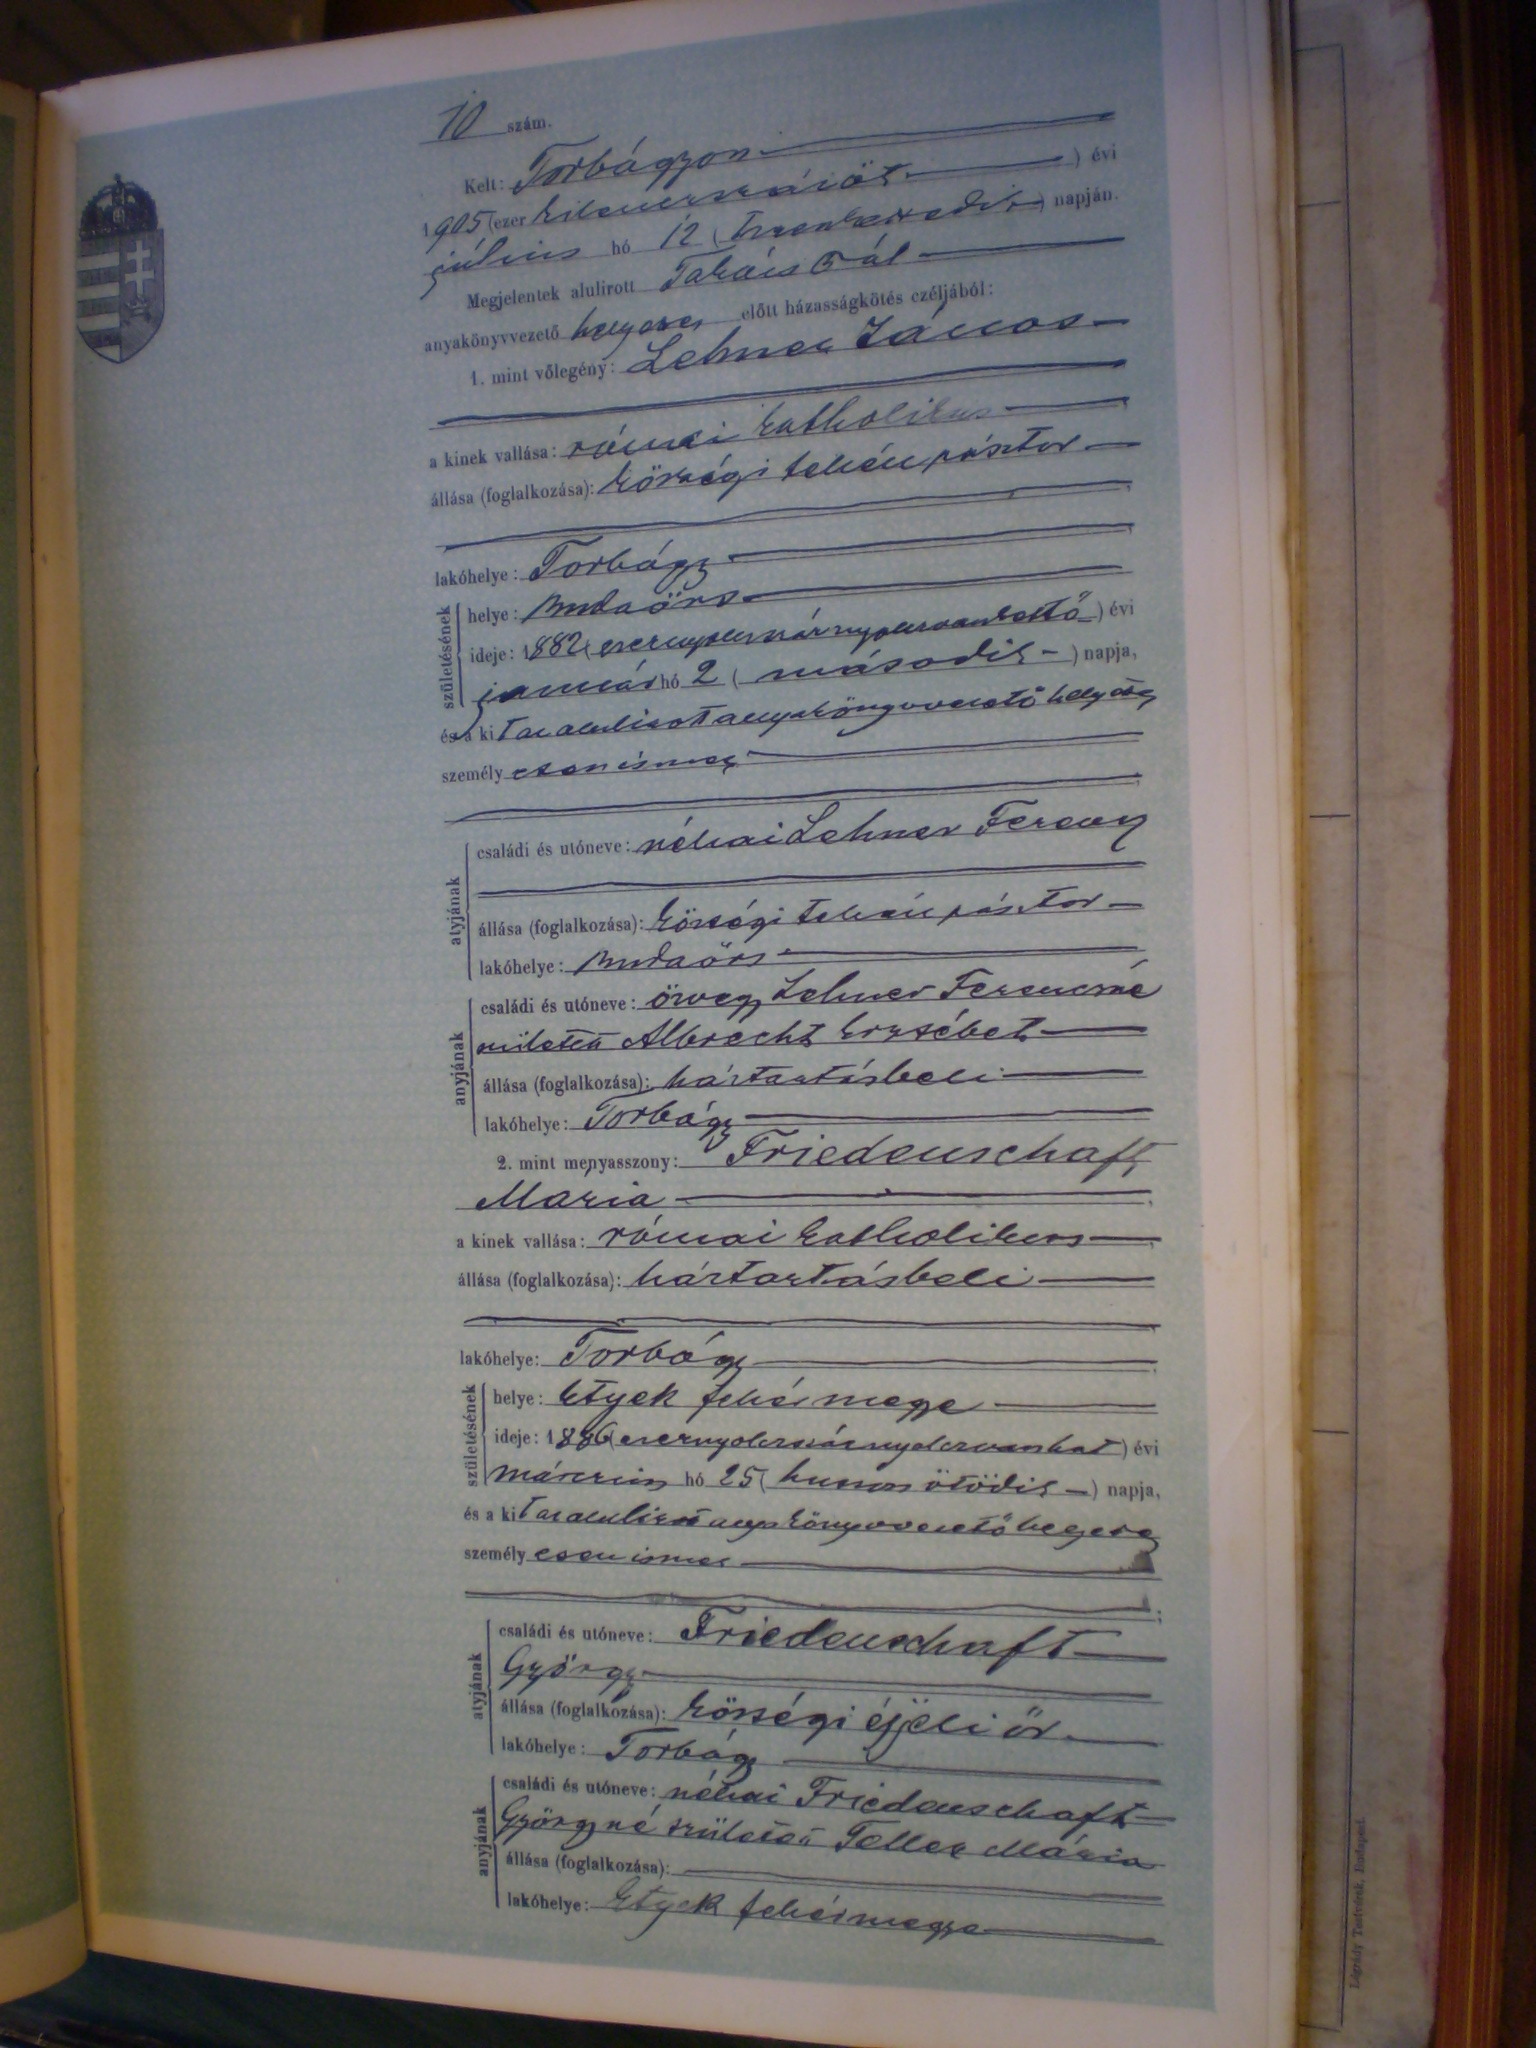 10 szám.
Kelt: Torbágyon
1905 (ezer kilenczszázöt ) évi
július hó 12 ( tizenkettedik ) napján.
Megjelentek alulirott Takács Pál
anyakönyvvezető helyettes előtt házasságkötés czéljából:
1. mint vőlegény: Lehner János
a kinek vallása: római katholikus
állása (foglalkozása): községi tehén pásztor
lakóhelye: Torbágy
születésének
helye: Budaörs
ideje: 1882 ( ezernyolczszáznyolczvankettő ) évi
január hó 2 ( második ) napja,
és a ki
személy
atyjának
családi és utóneve: néhai Lehner Ferencz
állása (foglalkozása): községi tehén pásztor
lakóhelye: Budaörs
anyjának
családi és utóneve: özvegy Lehner Ferenczné
született Albrecht Erzsébet
állása (foglalkozása): háztartásbeli
lakóhelye: Torbágy
2. mint menyasszony: Friedenschaft
Mária
a kinek vallása: római katholikus
állása (foglalkozása): háztartásbeli
lakóhelye: Torbágy
születésének
helye: Etyek fehérmegye
ideje: 1886 ( ezernyolczszáznyolczvanhat ) évi
márczius hó 25 ( huszonötödik ) napja,
és a ki
személy
atyjának
családi és utóneve: Friedenschaft
György
állása (foglalkozása): községi éjjeli őr
lakóhelye: Torbágy
anyjának
családi és utóneve: néhai Friedenschaft
Györgyné született Teller Mária
állása (foglalkozása):
lakóhelye: Etyek fehérmegye
Légrády Testvérek, Budapest.